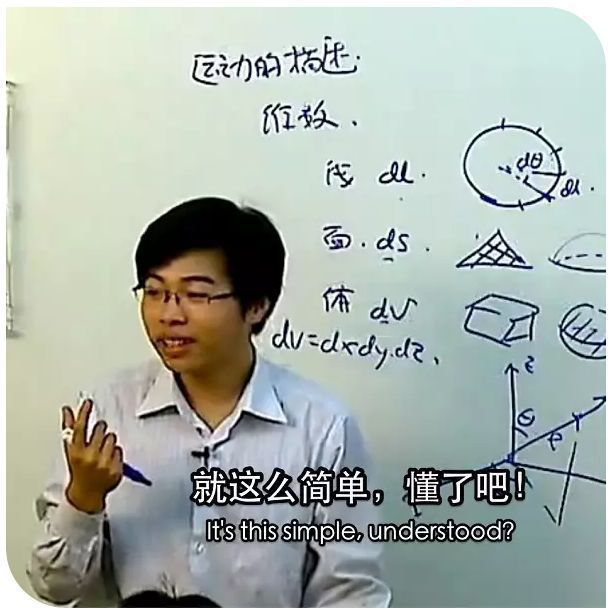 运动的描述.
维数.
线 dl.
dθ
dl.
面. ds.
体 dv
dv=dxdy.dz.
z
θ
就这么简单，懂了吧！
It's this simple, understood?